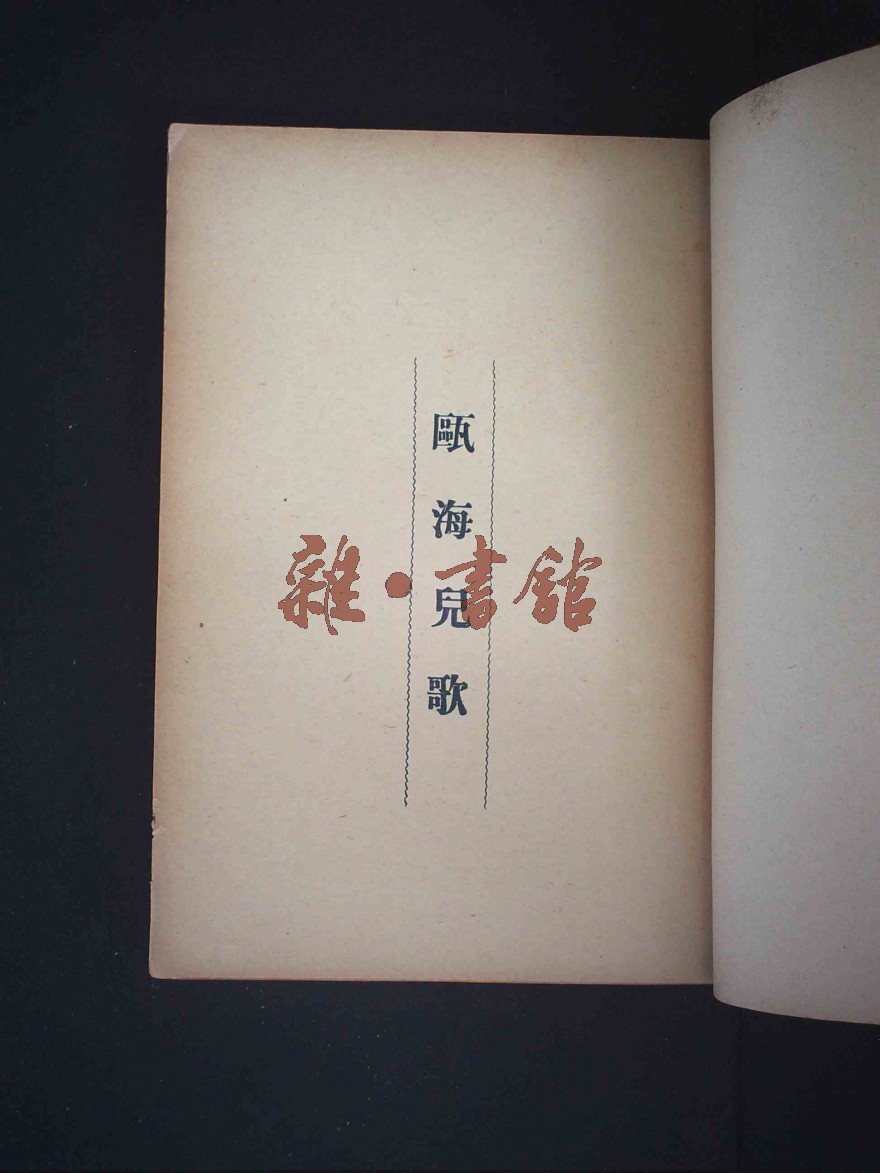 甌海兒歌
雜·書館